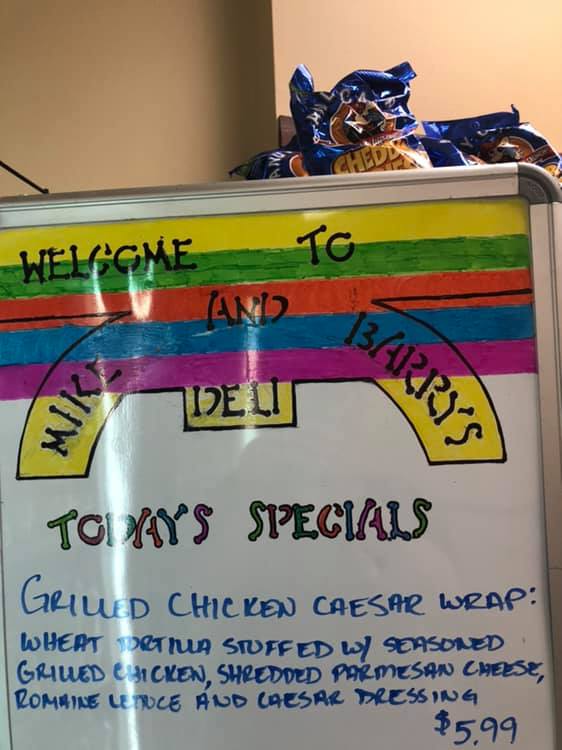 CHEDD
WELCOME TO
MIKE AND BARRY'S
DELI
TODAY'S SPECIALS
GRILLED CHICKEN CAESAR WRAP:
WHEAT TORTILLA STUFFED W/ SEASONED
GRILLED CHICKEN, SHREDDED PARMESAN CHEESE,
ROMAINE LETTUCE AND CAESAR DRESSING
$5.99